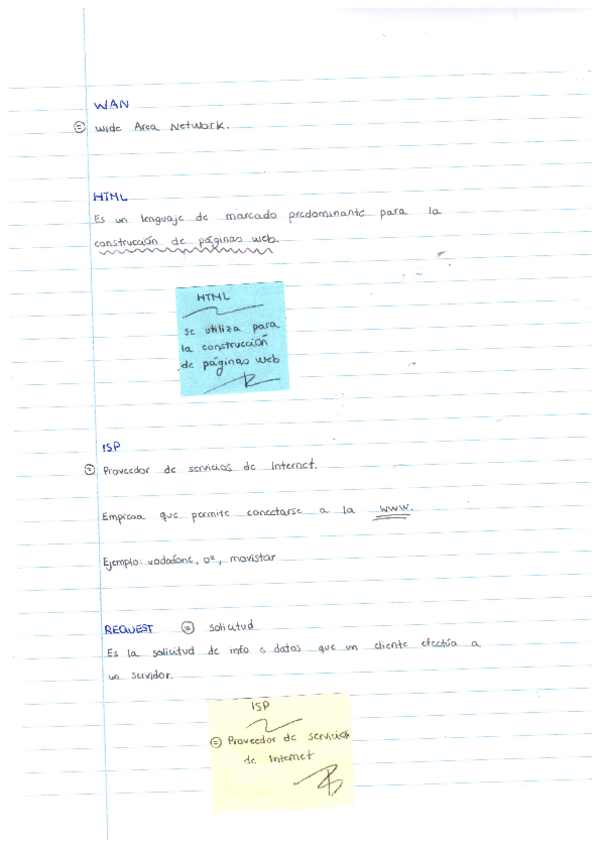 WAN
= Wide Area Network.
HTML
Es un lenguaje de marcado predominante para la
construcción de páginas web.
HTML
se utiliza para
la construcción
de páginas web
ISP
= Proveedor de servicios de Internet.
Empresa que permite conectarse a la www.
Ejemplo: vodafone, o2, movistar
REQUEST = solicitud
Es la solicitud de info o datos que un cliente efectúa a
un servidor.
ISP
= Proveedor de servicios
de Internet